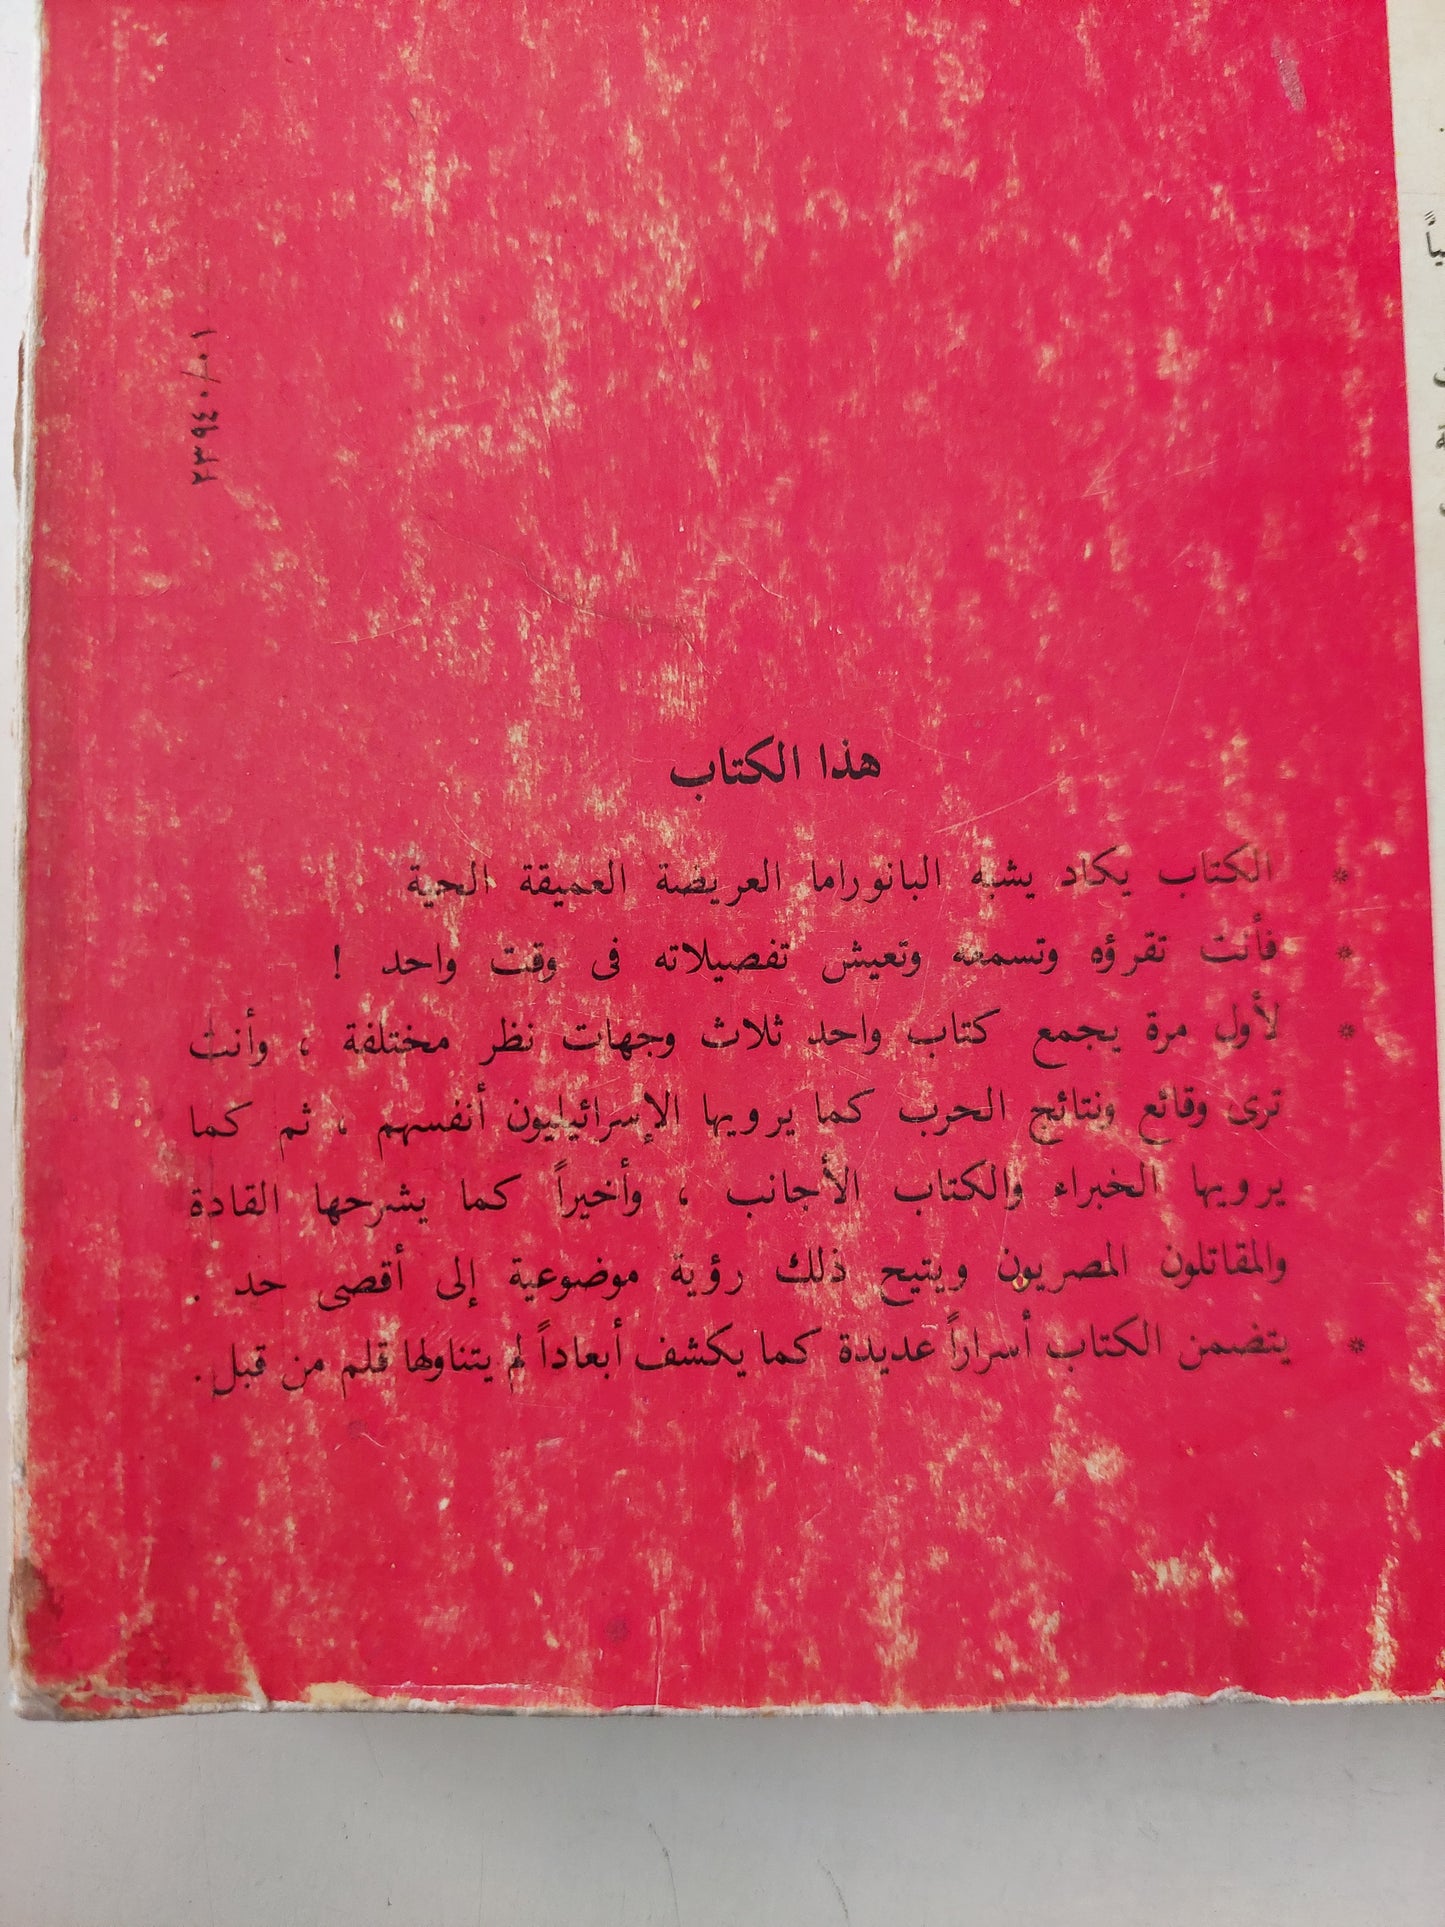 ٢٣٩٤٠/٠١
هذا الكتاب
* الكتاب يكاد يشبه البانوراما العريضة العميقة الحية
* فأنت تقرؤه وتسمعه وتعيش تفصيلاته فى وقت واحد !
* لأول مرة يجمع كتاب واحد ثلاث وجهات نظر مختلفة ، وأنت
ترى وقائع ونتائج الحرب كما يرويها الإسرائيليون أنفسهم ، ثم كما
يرويها الخبراء والكتاب الأجانب ، وأخيراً كما يشرحها القادة
والمقاتلون المصريون ويتيح ذلك رؤية موضوعية إلى أقصى حد .
* يتضمن الكتاب أسراراً عديدة كما يكشف أبعاداً لم يتناولها قلم من قبل.